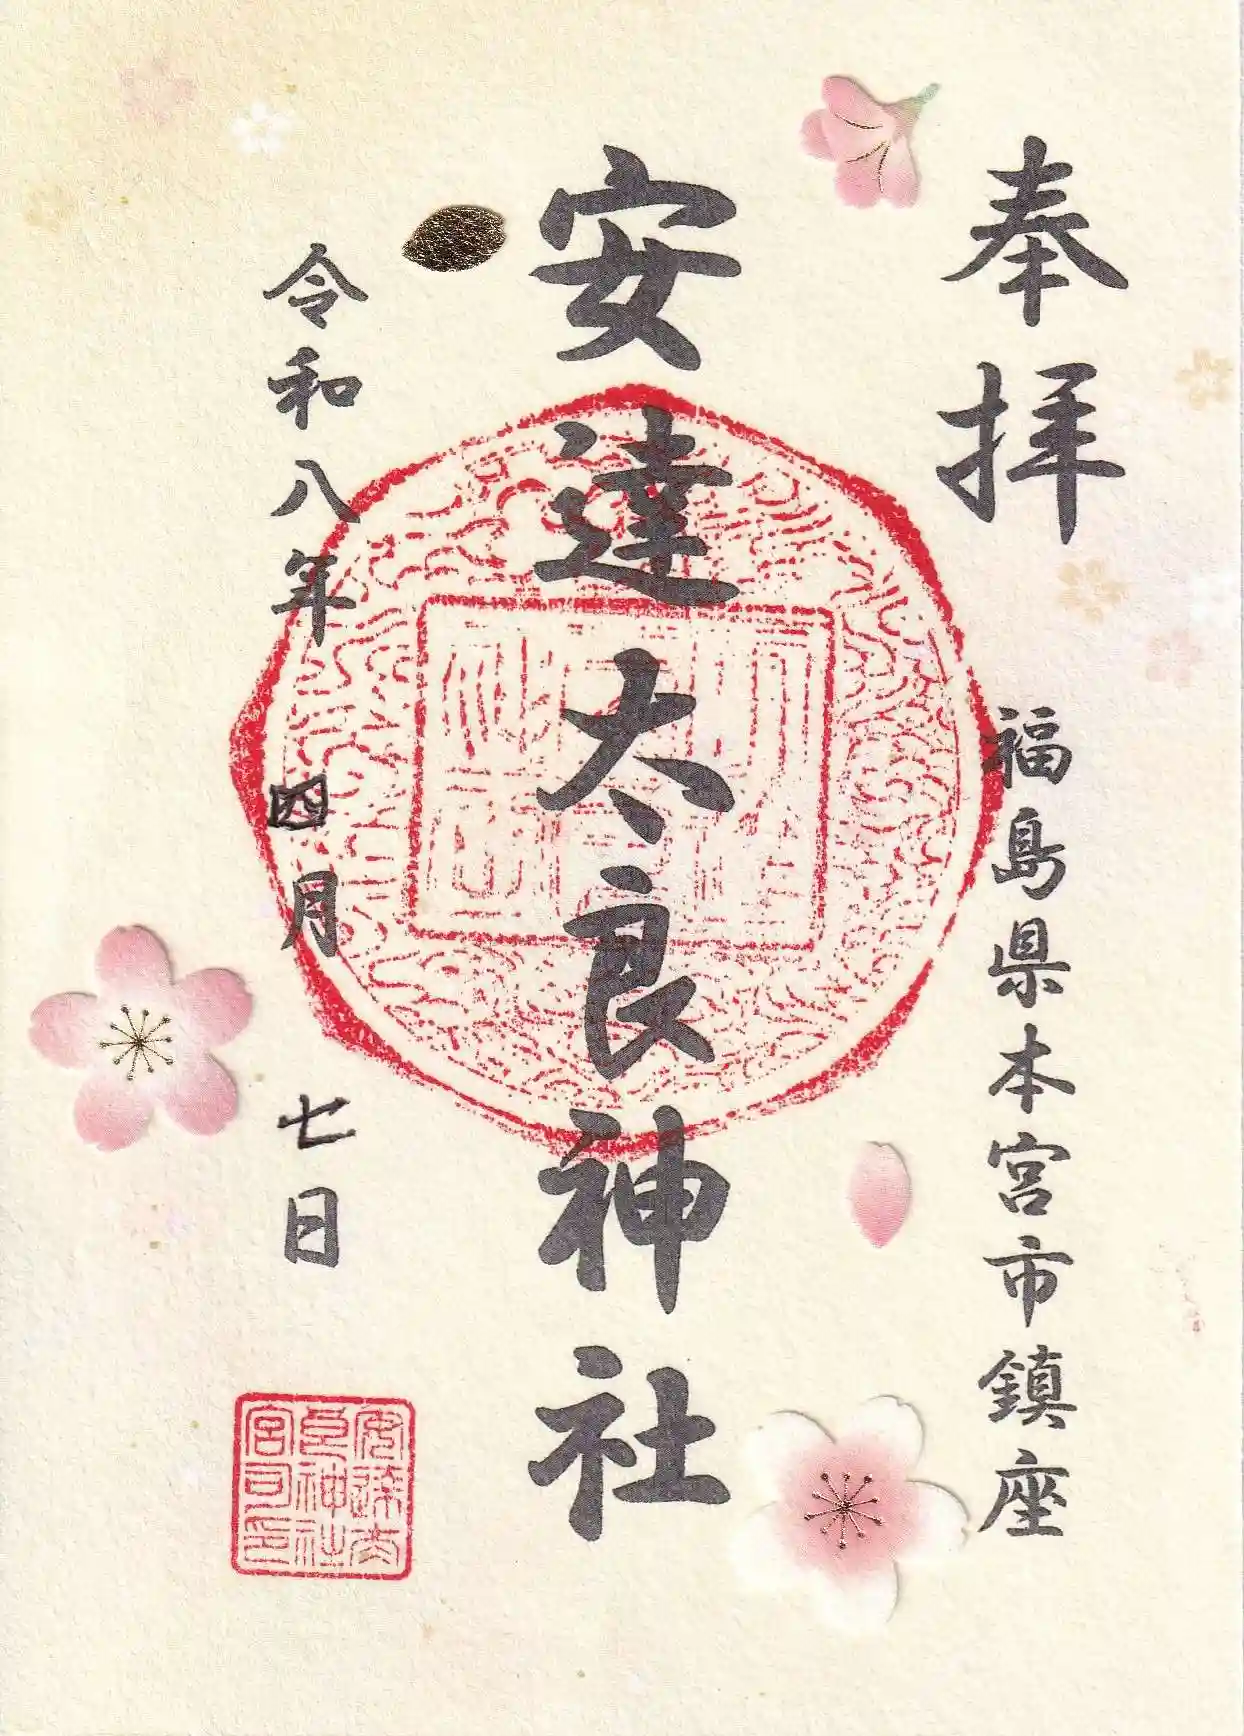 奉拝
福島県本宮市鎮座
安達太良神社
令和八年四月七日
安達太
良神社
宮司印